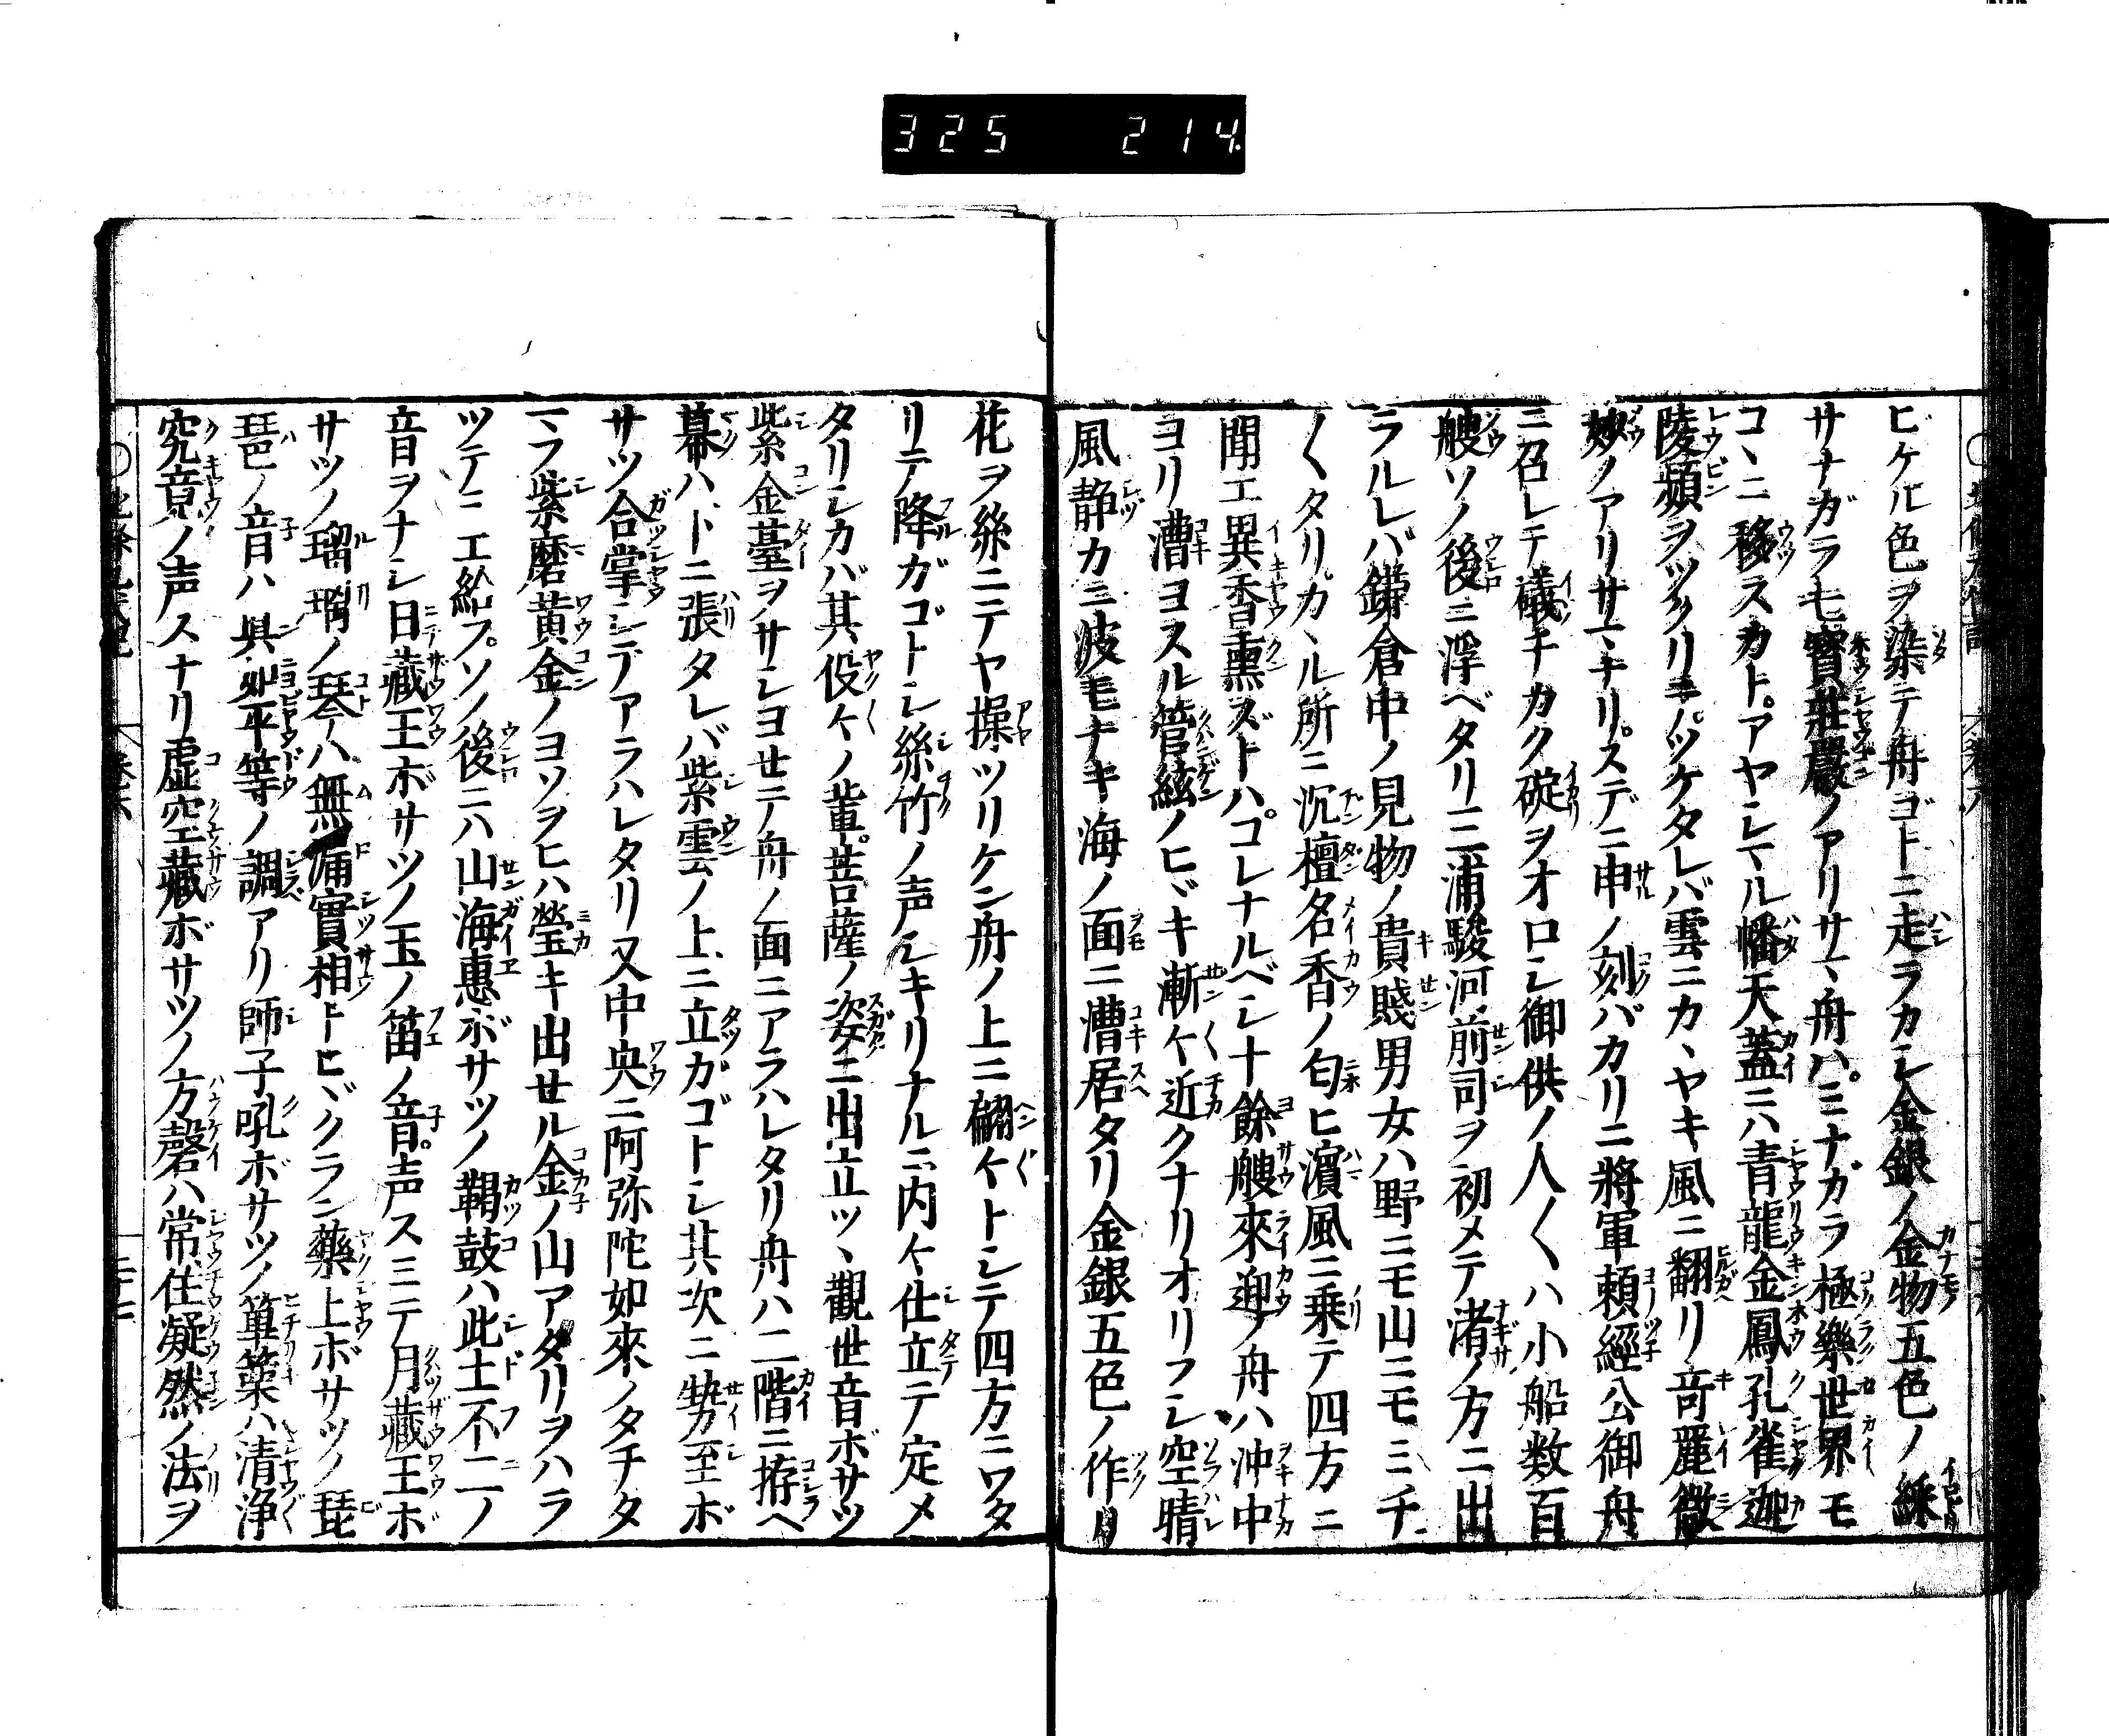 325 214
ビケル色ヲ染テ舟ゴトニ走ラカシ金銀ノ金物五色ノ綵
サナガラ七寳莊嚴ノアリサマ、舟ハミナガラ極樂世界モ
コヽニ移スカト。アヤシマル幡天蓋ニハ青龍金鳳孔雀迦
陵頻ヲツクリ
ツケタレバ雲ニカヽヤキ風ニ翻リ竒麗微
妙ノアリサマナリ。スデニ申ノ刻バカリニ將軍頼經公御舟
ニ召レテ礒チカク碇ヲオロシ御供ノ人〱ハ小船数百
艘ソノ後ニ浮ベタリ三浦駿河前司ヲ初メテ渚ノ方ニ出
ラルレバ鎌倉中ノ見物ノ貴賤男女ハ野ニモ山ニモミチ
〱タリ。カヽル所ニ沉檀名香ノ匂ヒ濱風ニ乗テ四方ニ
聞エ異香熏ズトハ。コレナルベシ十餘艘來迎ノ舟ハ沖中
ヨリ漕ヨスル管絃ノヒヾキ漸ケ近クナリオリフシ空晴
風静カニ波モナキ海ノ面ニ漕居タリ金銀五色ノ作リ
花ヲ絲ニテヤ操ツリケン舟ノ上ニ翩ケトシテ四方ニワタ
リテ降ガゴトシ絲竹ノ声シキリナルニ内ケ仕立テ定メ
タリシカバ其役ケノ輩。菩薩ノ姿ニ出立ツヽ觀世音ボサツ
紫金臺ヲサシヨセテ舟ノ面ニアラハレタリ舟ハ二階ニ拵ヘ
幕ハ
ニ張タレバ紫雲ノ上ニ立ガゴトシ其次ニ勢至ボ
サツ合掌シテアラハレタリ又中央ニ阿弥陀如來ノタチタ
マフ紫磨黄金ノヨソヲヒハ瑩キ出セル金ノ山アタリヲハラ
ツテミエ給フ。ソノ後ニハ山海惠ボサツノ鞨鼓ハ此土不二ノ
音ヲナシ日藏王ボサツノ玉ノ笛ノ音。声スミテ月藏王ボ
サツノ瑠璃ノ琴ハ無漏實相トヒヾクラン藥上ボサツノ琵
琶ノ音ハ眞如平等ノ調アリ師子吼ボサツノ篳篥ハ清浄
究竟ノ声スナリ虚空藏ボサツノ方磬ハ常住凝然ノ法ヲ